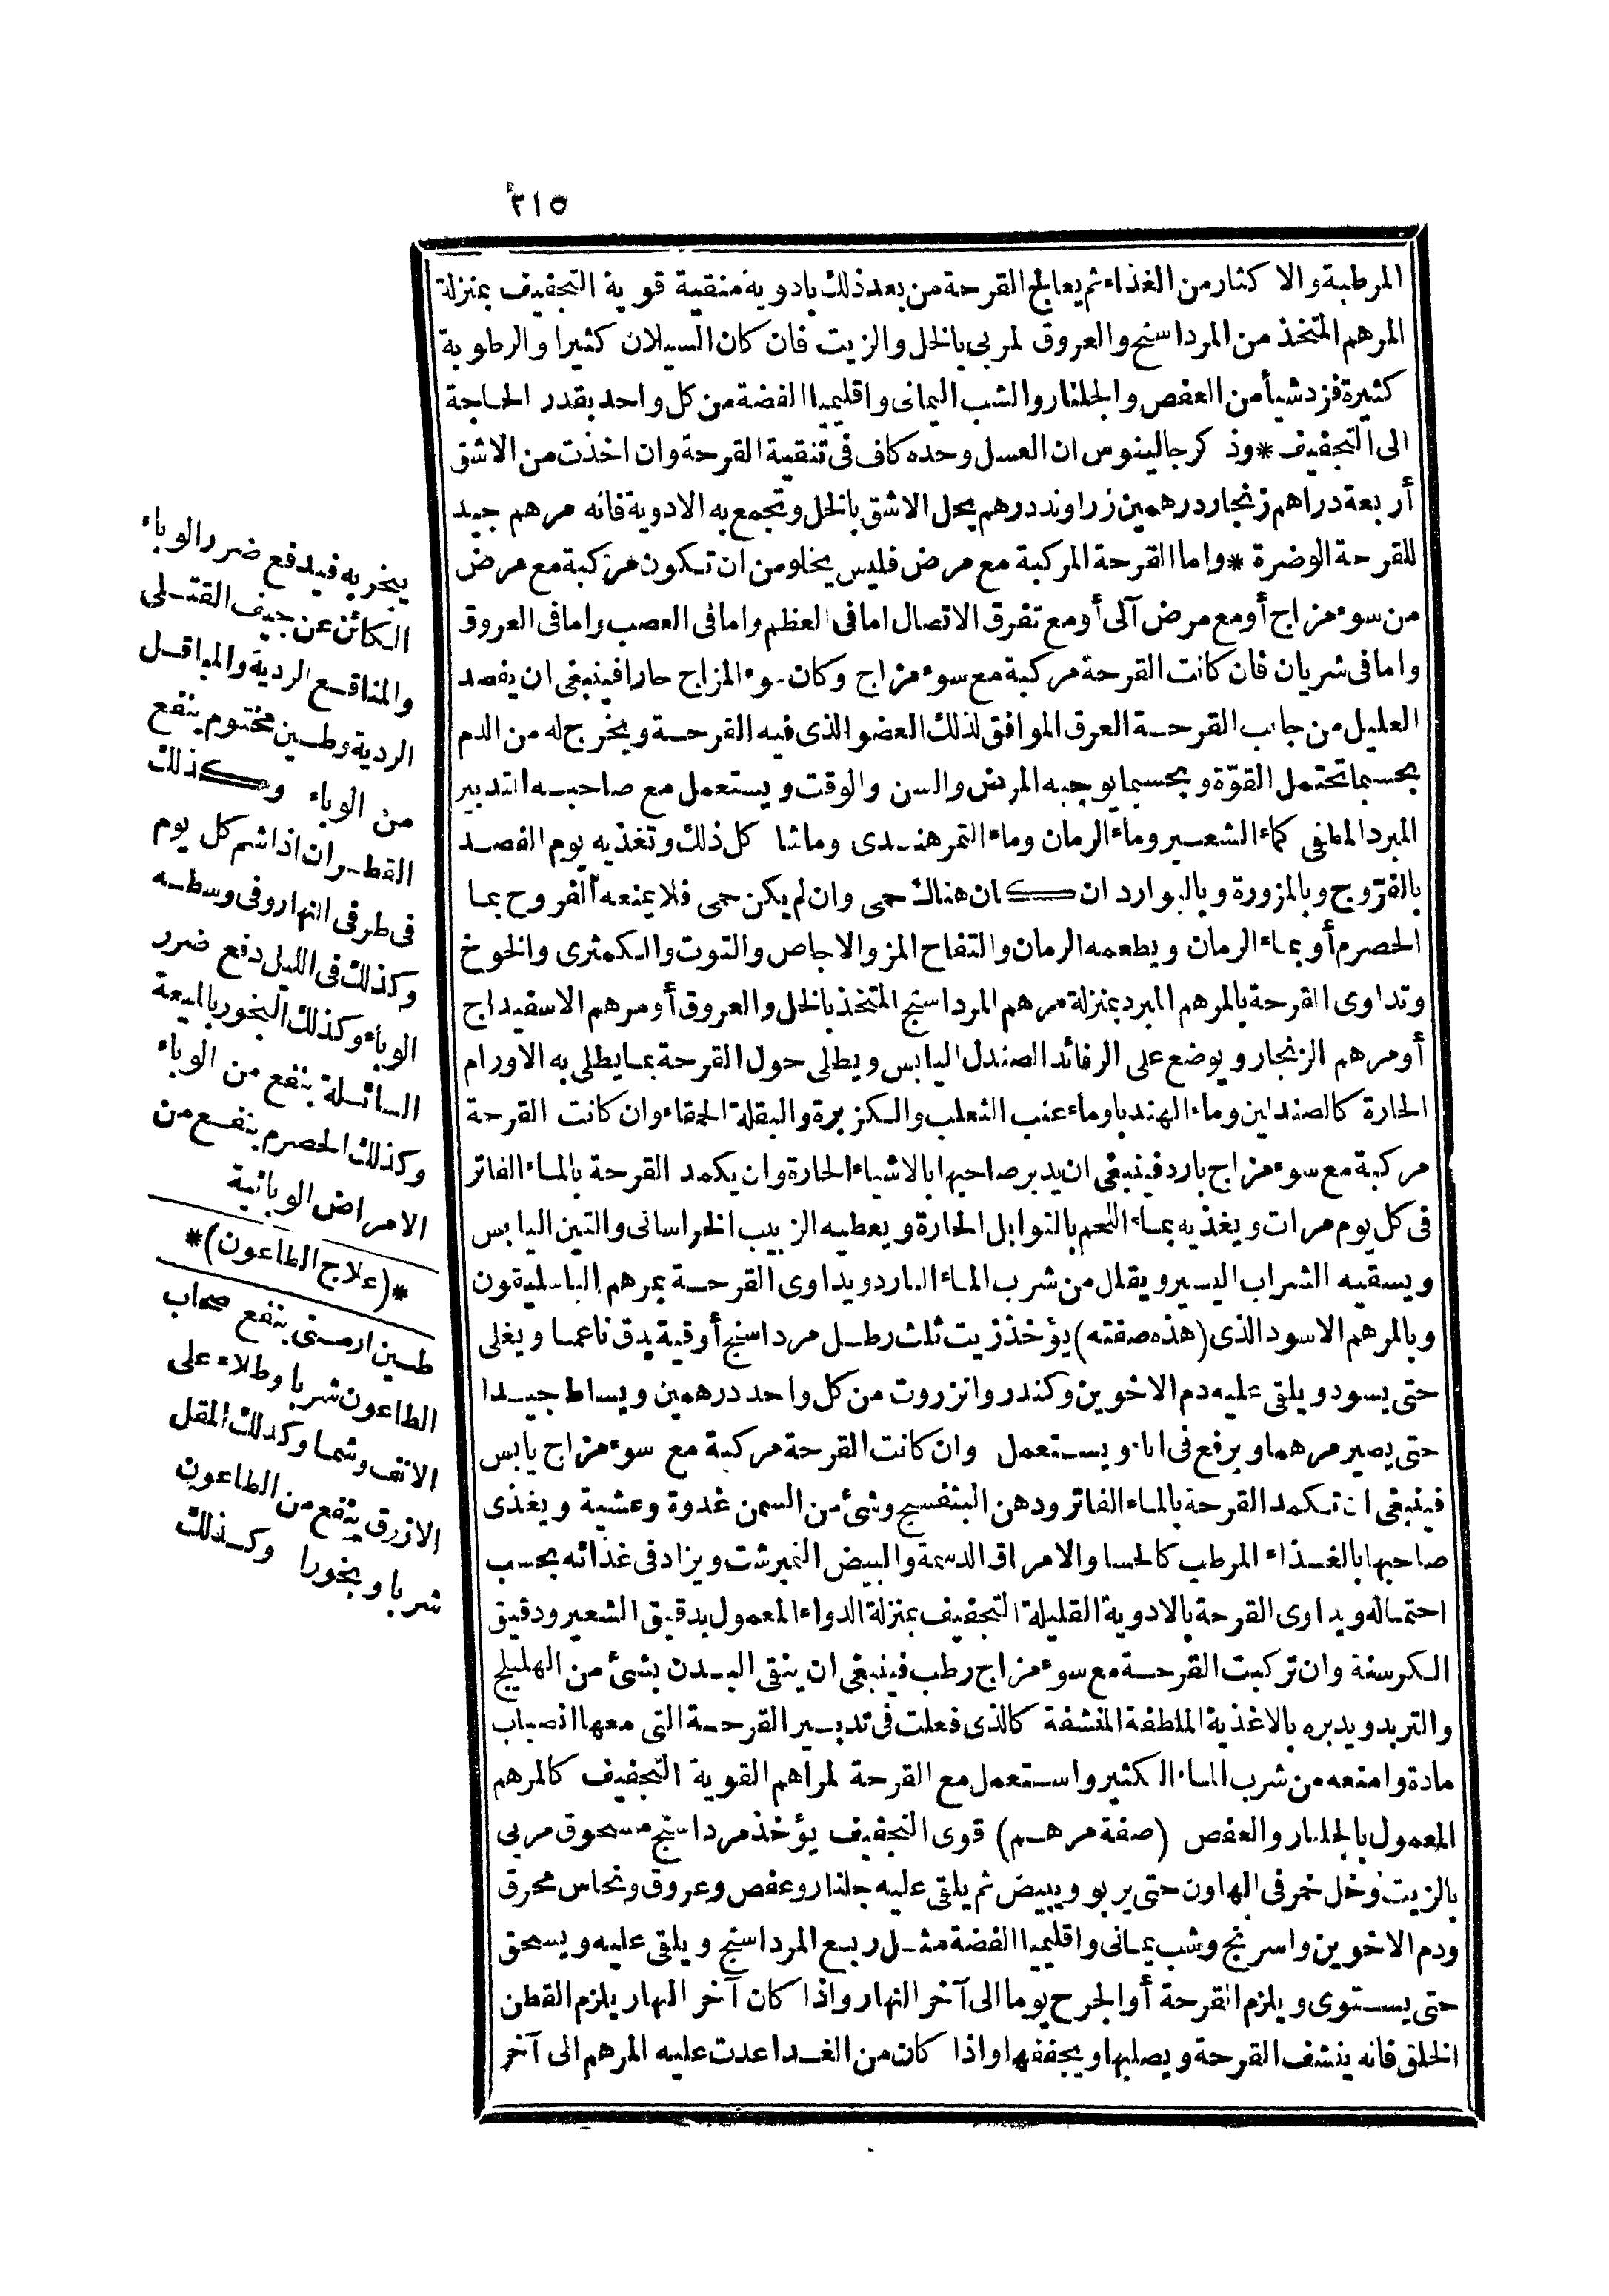 ٣١٥
المرطبة والاكثار من الغذاء ثم يعالج القرحة من بعد ذلك بادوية منقية قوية التجفيف بمنزلة
المرهم المتخذ من المرداسنج والعروق لمربى بالخل والزيت فان كان السيلان كثيرا والرطوبة
كثيرة فزد شيأ من العفص والجلنار والشب اليمانى واقليميا الفضة من كل واحد بقدر الحاجة
الى التجفيف * وذكر جالينوس ان العسل وحده كاف فى تنقية القرحة وان اخذت من الاشق
أربعة دراهم زنجار درهمين زراوند درهم يحل الاشق بالخل وتجمع به الادوية فانه مرهم جيد
للقرحة الوضرة * واما القرحة المركبة مع مرض فليس يخلو من ان تكون مركبة مع مرض
من سوء مزاج أو مع مرض آلى أو مع تفرق الاتصال اما فى العظم واما فى العصب واما فى العروق
واما فى شريان فان كانت القرحة مركبة مع سوء مزاج وكان سوء المزاج حارا فينبغى ان يفصد
العليل من جانب القرحة العرق الموافق لذلك العضو الذى فيه القرحة ويخرج له من الدم
بحسب ما تحتمل القوّة وبحسب ما يوجبه المرض والسن والوقت ويستعمل مع صاحبه التدبير
المبرد المطفى كماء الشعير وماء الرمان وماء التمر هندى وماشا كل ذلك وتغذيه يوم الفصد
بالفرّوج وبالمزورة وبالبوارد ان كان هناك حمى وان لم يكن حمى فلا يمنعه الفروج بما
الحصرم أو بماء الرمان ويطعمه الرمان والتفاح المز والاجاص والتوت والكمثرى والخوخ
وتداوى القرحة بالمرهم المبرد بمنزلة مرهم المرداسنج المتخذ بالخل والعروق أو مرهم الاسفيداج
أو مرهم الزنجار ويوضع على الرفائد الصندل اليابس ويطلى حول القرحة بما يطلى به الاورام
الحارة كالصندلين وماء الهندبا وماء عنب الثعلب والكزبرة والبقلة الحمقاء وان كانت القرحة
مركبة مع سوء مزاج بارد فينبغى ان يدبر صاحبها بالاشياء الحارة وان يكمد القرحة بالماء الفاتر
فى كل يوم مرات ويغذيه بماء اللحم بالتوابل الحارة ويعطيه الزبيب الخراسانى والتين اليابس
ويسقيه الشراب اليسير ويقلل من شرب الماء البارد ويداوى القرحة بمرهم الباسليقون
وبالمرهم الاسود الذى (هذه صفته) يؤخذ زيت ثلث رطل مرداسنج أوقية يدق ناعما ويغلى
حتى يسود ويلقى عليه دم الاخوين وكندر وانزروت من كل واحد درهمين ويساط جيدا
حتى يصير مرهما ويرفع فى اناء ويستعمل وان كانت القرحة مركبة مع سوء مزاج يابس
فينبغى ان تكمد القرحة بالماء الفاتر ودهن البنفسج وشئ من السمن غدوة وعشية ويغذى
صاحبها بالغذاء المرطب كالحسا والامراق الدسمة والبيض النمبرشت ويزاد فى غذائه بحسب
احتماله ويداوى القرحة بالادوية القليلة التجفيف بمنزلة الدواء المعمول بدقيق الشعير ودقيق
الكرسنة وان تركبت القرحة مع سوء مزاج رطب فينبغى ان ينقى البدن بشئ من الهليلج
والتربد ويدبره بالاغذية الملطفة المنشفة كالذى فعلت فى تدبير القرحة التى معها انصباب
مادة وامنعه من شرب الماء الكثير واستعمل مع القرحة لمراهم القوية التجفيف كالمرهم
المعمول بالجلنار والعفص (صفة مرهم) قوى التجفيف يؤخذ مرداسنج مسحوق مربى
بالزيت وخل خمر فى الهاون حتى يربو ويبيض ثم يلقى عليه جلنار وعفص وعروق ونحاس محرق
ودم الاخوين واسرنج وشب يمانى واقليميا الفضة مثل ربع المرداسنج ويلقى عليه ويسحق
حتى يستوى ويلزم القرحة أو الجرح يوما الى آخر النهار واذا كان آخر النهار يلزم القطن
الخلق فانه ينشف القرحة ويصلبها ويجففها واذا كان من الغد اعدت عليه المرهم الى آخر
يبخر به فيدفع ضرر الوباء
الكائن عن جيف القتلى
والمناقع الردية والمباقل
الردية وطين مختوم ينفع
من الوباء وكذلك
القطران اذا شم كل يوم
فى طرفى النهار وفى وسطه
وكذلك فى الليل دفع ضرر
الوباء وكذلك البخور بالميعة
السائلة ينفع من الوباء
وكذلك الحصرم ينفع من
الامراض الوبائية
*(علاج الطاعون)*
طين ارمنى ينفع صحاب
الطاعون شربا وطلاء على
الانف وشما وكذلك المقل
الازرق ينفع من الطاعون
شربا وبخورا وكذلك